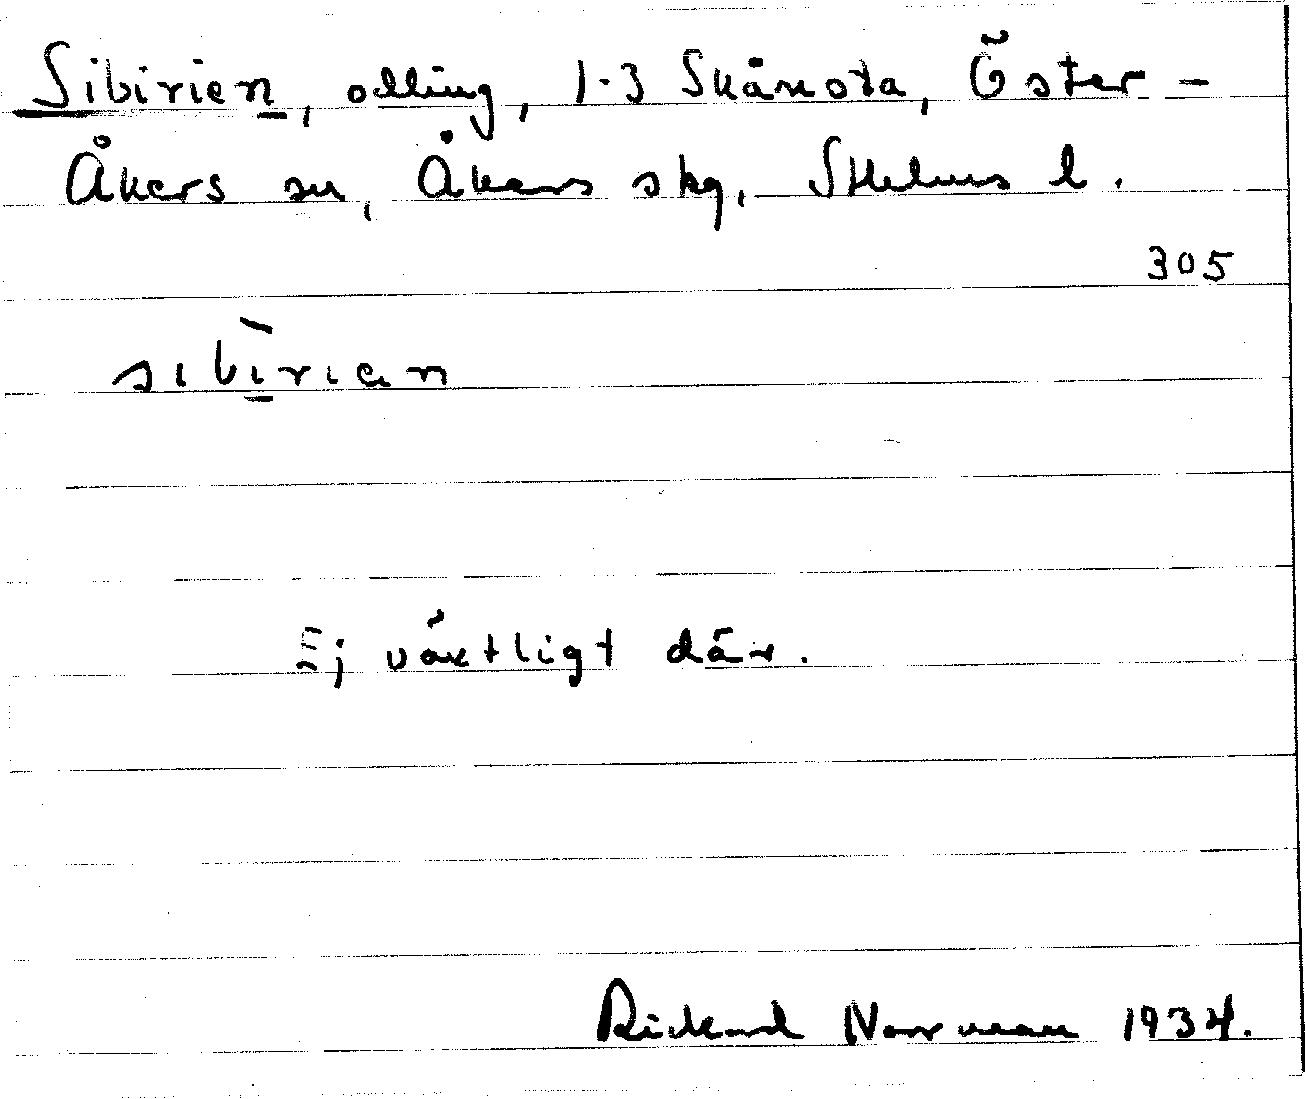 Sibirien, odling, 1-3 Skånsta, Öster-
Åkers sn, Åkers skg, Sthlms l.
305
sibirian
Ej växtligt där.
Rickard Norrman 1934.